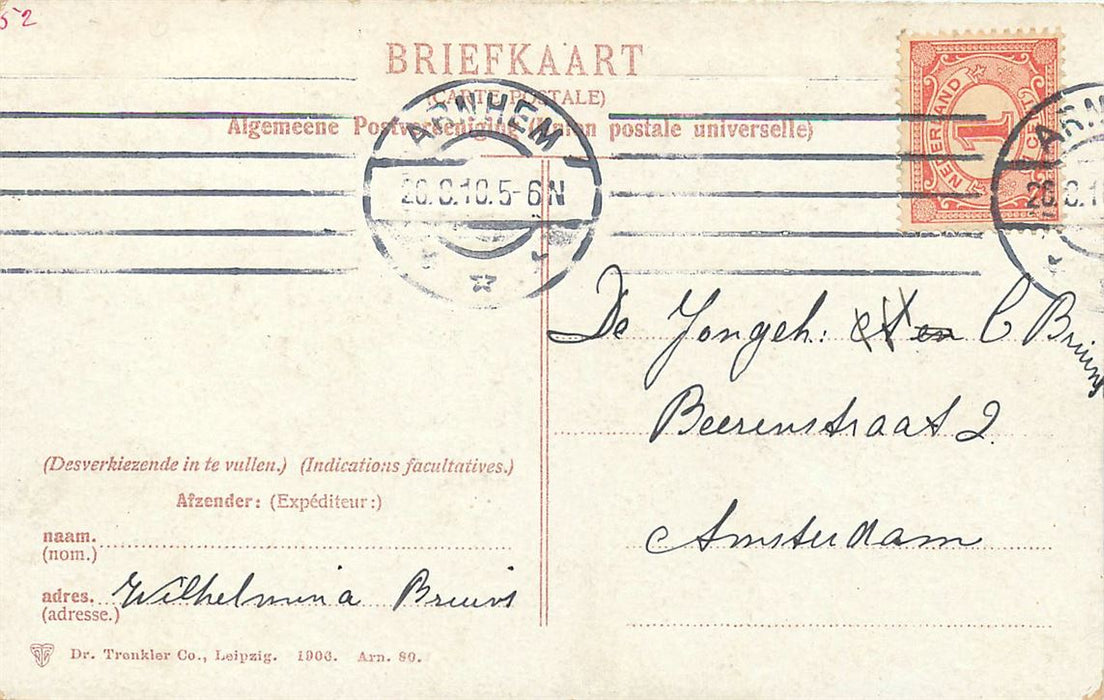 52
BRIEFKAART
(CARTE POSTALE)
Algemeene Postvereeniging (Union postale universelle)
ARNHEM
26.8.10.5-6N
NEDERLAND
1
CENT
ARN
26.8.1
De Jongeh: en C Bruins
Beerenstraat 2.
Amsterdam
(Desverkiezende in te vullen.) (Indications facultatives.)
Afzender: (Expéditeur:)
naam.
(nom.)
adres. Wilhelmina Bruins
(adresse.)
Dr. Trenkler Co., Leipzig. 1906. Arn. 80.